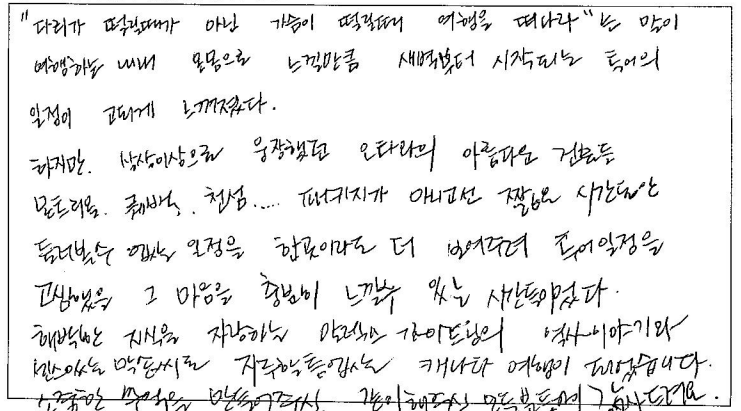 "다리가 떨릴때가 아닌 가슴이 떨릴때 여행을 떠나라"는 말이
여행하는 내내 온몸으로 느낄만큼 새벽부터 시작되는 투어의
일정이 고되게 느껴졌다.
하지만. 상상이상으로 웅장했던 오타와의 아름다운 건물들
몬트리올. 퀘백. 천섬.... 패키지가 아니고선 짧은 시간동안
둘러볼수 없는 일정을 한곳이라도 더 보여주려 투어일정을
고심했을 그 마음을 충분히 느낄수 있는 시간들이었다.
해박한 지식을 자랑하는 가이드님의 역사이야기와
맛있는 말솜씨로 지루할틈없는 캐나다 여행이 되었습니다.
소중한 추억을 만들어주신 같이해주신 모든분들께 감사드려요.